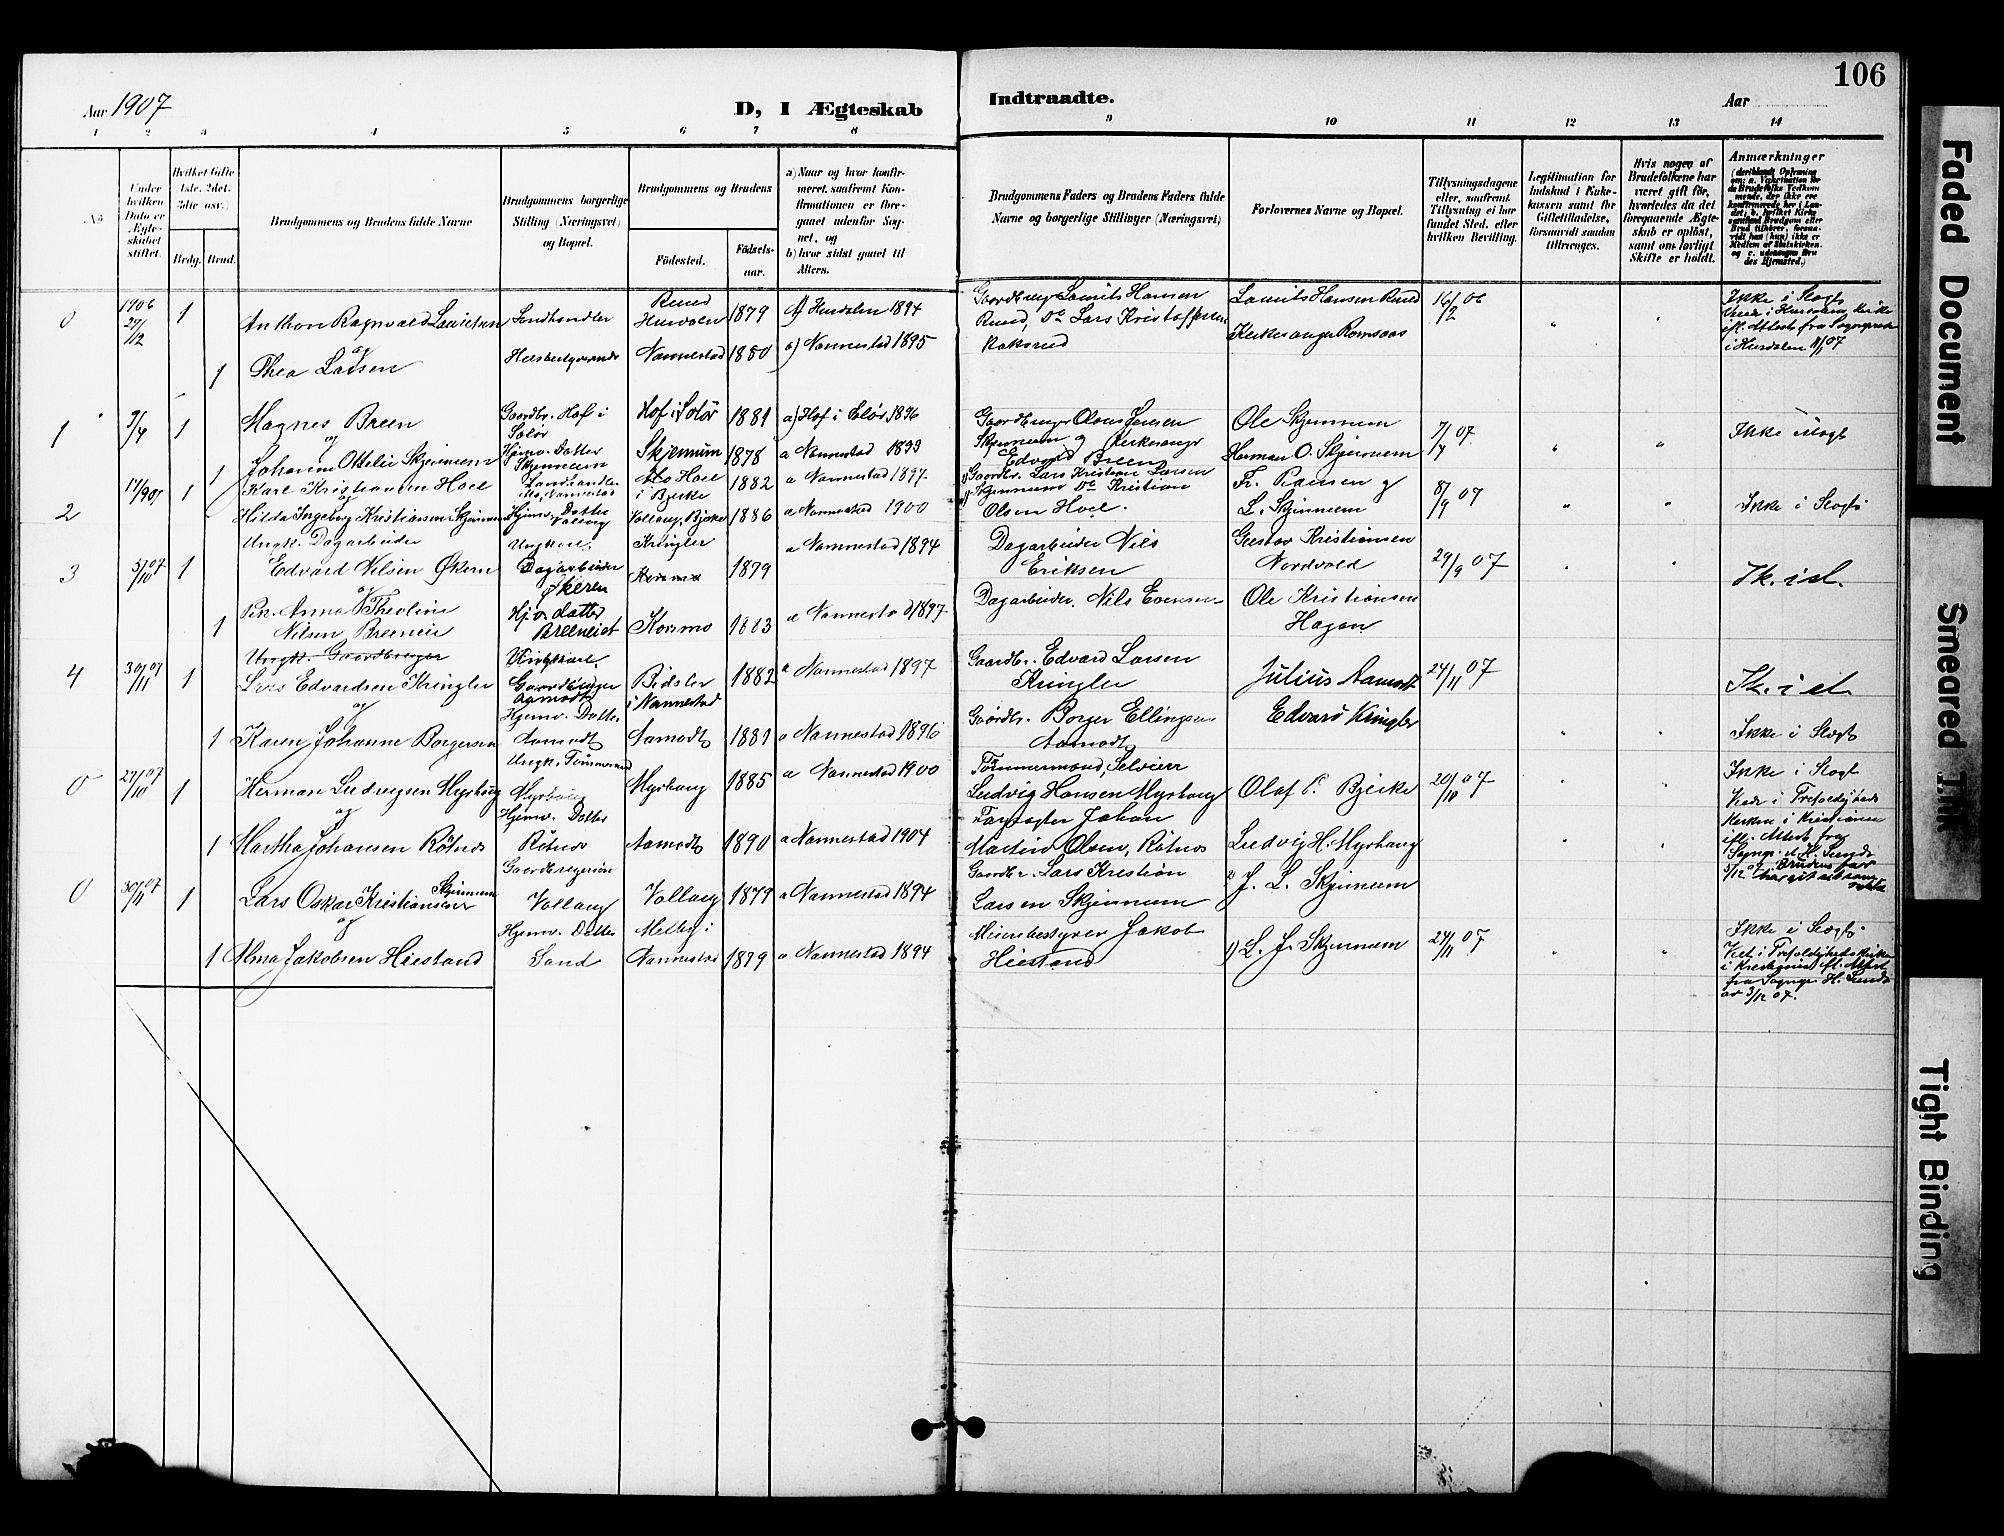 106
Aar 1907
D, I Ægteskab
Indtraadte.
Aar
1 2 3 4 5 6 7 8
9 10 11 12 13 14
No
Under hvilken Dato er Ægteskabet stiftet.
Hvilket Gifte 1ste, 2det, 3die osv.)
Brdg. Brud.
Brudgommens og Brudens fulde Navne
Brudgommens borgerlige Stilling (Næringsvei) og Bopæl.
Brudgommens og Brudens
Födested.
Födsels-aar.
a) Naar og hvor konfirmeret, saafremt Konfirmationen er foregaaet udenfor Sognet, og
b) hvor sidst gaaet til Alters.
Brudgommens Faders og Brudens Faders fulde Navne og borgerlige Stillinger (Næringsvei)
Forlovernes Navne og Bopæl.
Tillysningsdagene eller, saafremt Tillysning ei har fundet Sted, efter hvilken Bevilling.
Legitimation for Indskud i Enkekassen samt for Giftetilladelse, forsaavidt saadan tiltrænges.
Hvis nogen af Brudefolkene har været gift för, hvorledes da det foregaaende Ægteskab er oplöst, samt om lovligt Skifte er holdt.
Anmærkninger
0 1906 27/12 1 Anthon Ragnvald Lauritsen
og
1 Thea Larsen
Landhandler
Ruud Hurdalen 1879 a) Hurdalen 1894
Nannestad 1880 b) Nannestad 1895
Gaardbruger Laurits Hansen Ruud, Do Lars Kristoffersen
Laurits Hansen Ruud
Kirkesanger Romsaas
16/12 06
Ikke i Slægt
Viede i Hurdalens Kirke ifl. Attest fra Sogneprest i Hurdalen 8/1 07
1 1 Magnes Breen
og
1 Johanne Otelie Skjennum
Gaardbr. Hof i Solör
Hjemv. Datter Skjennum
Hof i Solör 1881 a) Hof i Solör 1896
Skjennum 1878 a Nannestad 1893
Gaardbruger Olaus Jensen Skjennum og Kirkesanger Edvard Breen
Ole Skjennum
Herman O. Skjennum
7/4 07
Ikke i Slægt
2 14/9 07 1 Karl Kristiansen Hoel
og
Hilda Ingeborg Kristiansen Skjennum
Landhandler Mo, Nannestad
Hjemv. Datter Vollaug
Mo Hoel i Bjerke 1882 a Nannestad 1897
Vollaug, Bjerke 1886 a Nannestad 1900
Gaardbr. Lars Kristian Larsen Skjennum Do Kristian Olsen Hoel.
L. Skjennum
8/9 07
Ikke i Slægt
3 5/10 07 1 Ungk. Dagarbeider
Edvard Nilsen Økern
og
1 Pk. Anna Theoline
Nilsen Breeneie
Ungkarl. Dagarbeider Økeren
Hjv. datter Breeneiet
Kringler Korsmo 1879 a Nannestad 1894
Korsmo 1883 a Nannestad 1897
Dagarbeider Nils Eriksen
Dagarbeider. Nils Evensen
Gustav Kristiansen Nordvold
Ole Kristiansen Hagan
29/9 07
Ik. i sl.
4 30/11 07 1 Ungk. Gaardbruger
Lars Edvardsen Kringler
og
1 Karen Johanne Borgersen
Ungkarl. Gaardbruger Aamodt
Hjemv. Datter Aamodt
i Nannestad 1882 a Nannestad 1897
Aamodt 1881 a Nannestad 1896
Gaardbr. Edvard Larsen Kringler
Gaardbr. Borger Ellingsen Aamodt
Julius Aamodt
Edvard Kringler
24/11 07
Ik. i sl.
Ikke i Slægt
0 27/10 07 1 Herman Ludvigsen Myrhaug
og
1 Martha Johansen Rötnes
Ungk. Tömmermand Myrhaug
Hjemv. Datter Rötnes
Myrhaug 1885 a Nannestad 1900
Aamodt 1890 a Nannestad 1904
Tömmermand, Selveier Ludvig Hansen Myrhaug
Forpagter Johan Martin Olsen, Rötnes
Olaf P. Bjerke
Ludvig H. Myrhaug
20/10 07
Ikke i Slægt
Viede i Trefoldigheds Kirken i Kristiania ifl. Attest fra Sognepr. H. Lunde 3/12 07
0 30/11 07 1 Lars Oskar Kristiansen Skjennum
og
1 Alma Jakobsen Hiestand
Gaardbrugersön Vollaug
Hjemv. Datter Sand
Vollaug 1879 a Nannestad 1894
Melby i Nannestad 1879 a Nannestad 1894
Gaardbr. Lars Kristian Larsen Skjennum
Meieribestyrer Jakob Hiestand
2) J. L. Skjennum
1) L. J. Skjennum
24/11 07
Ikke i Slægt.
Viet i Trefoldighedskirke i Kristiania ifl. Attest fra Sognepr. H. Lunde av 3/12 07.
Faded Document
Smeared Ink
Tight Binding